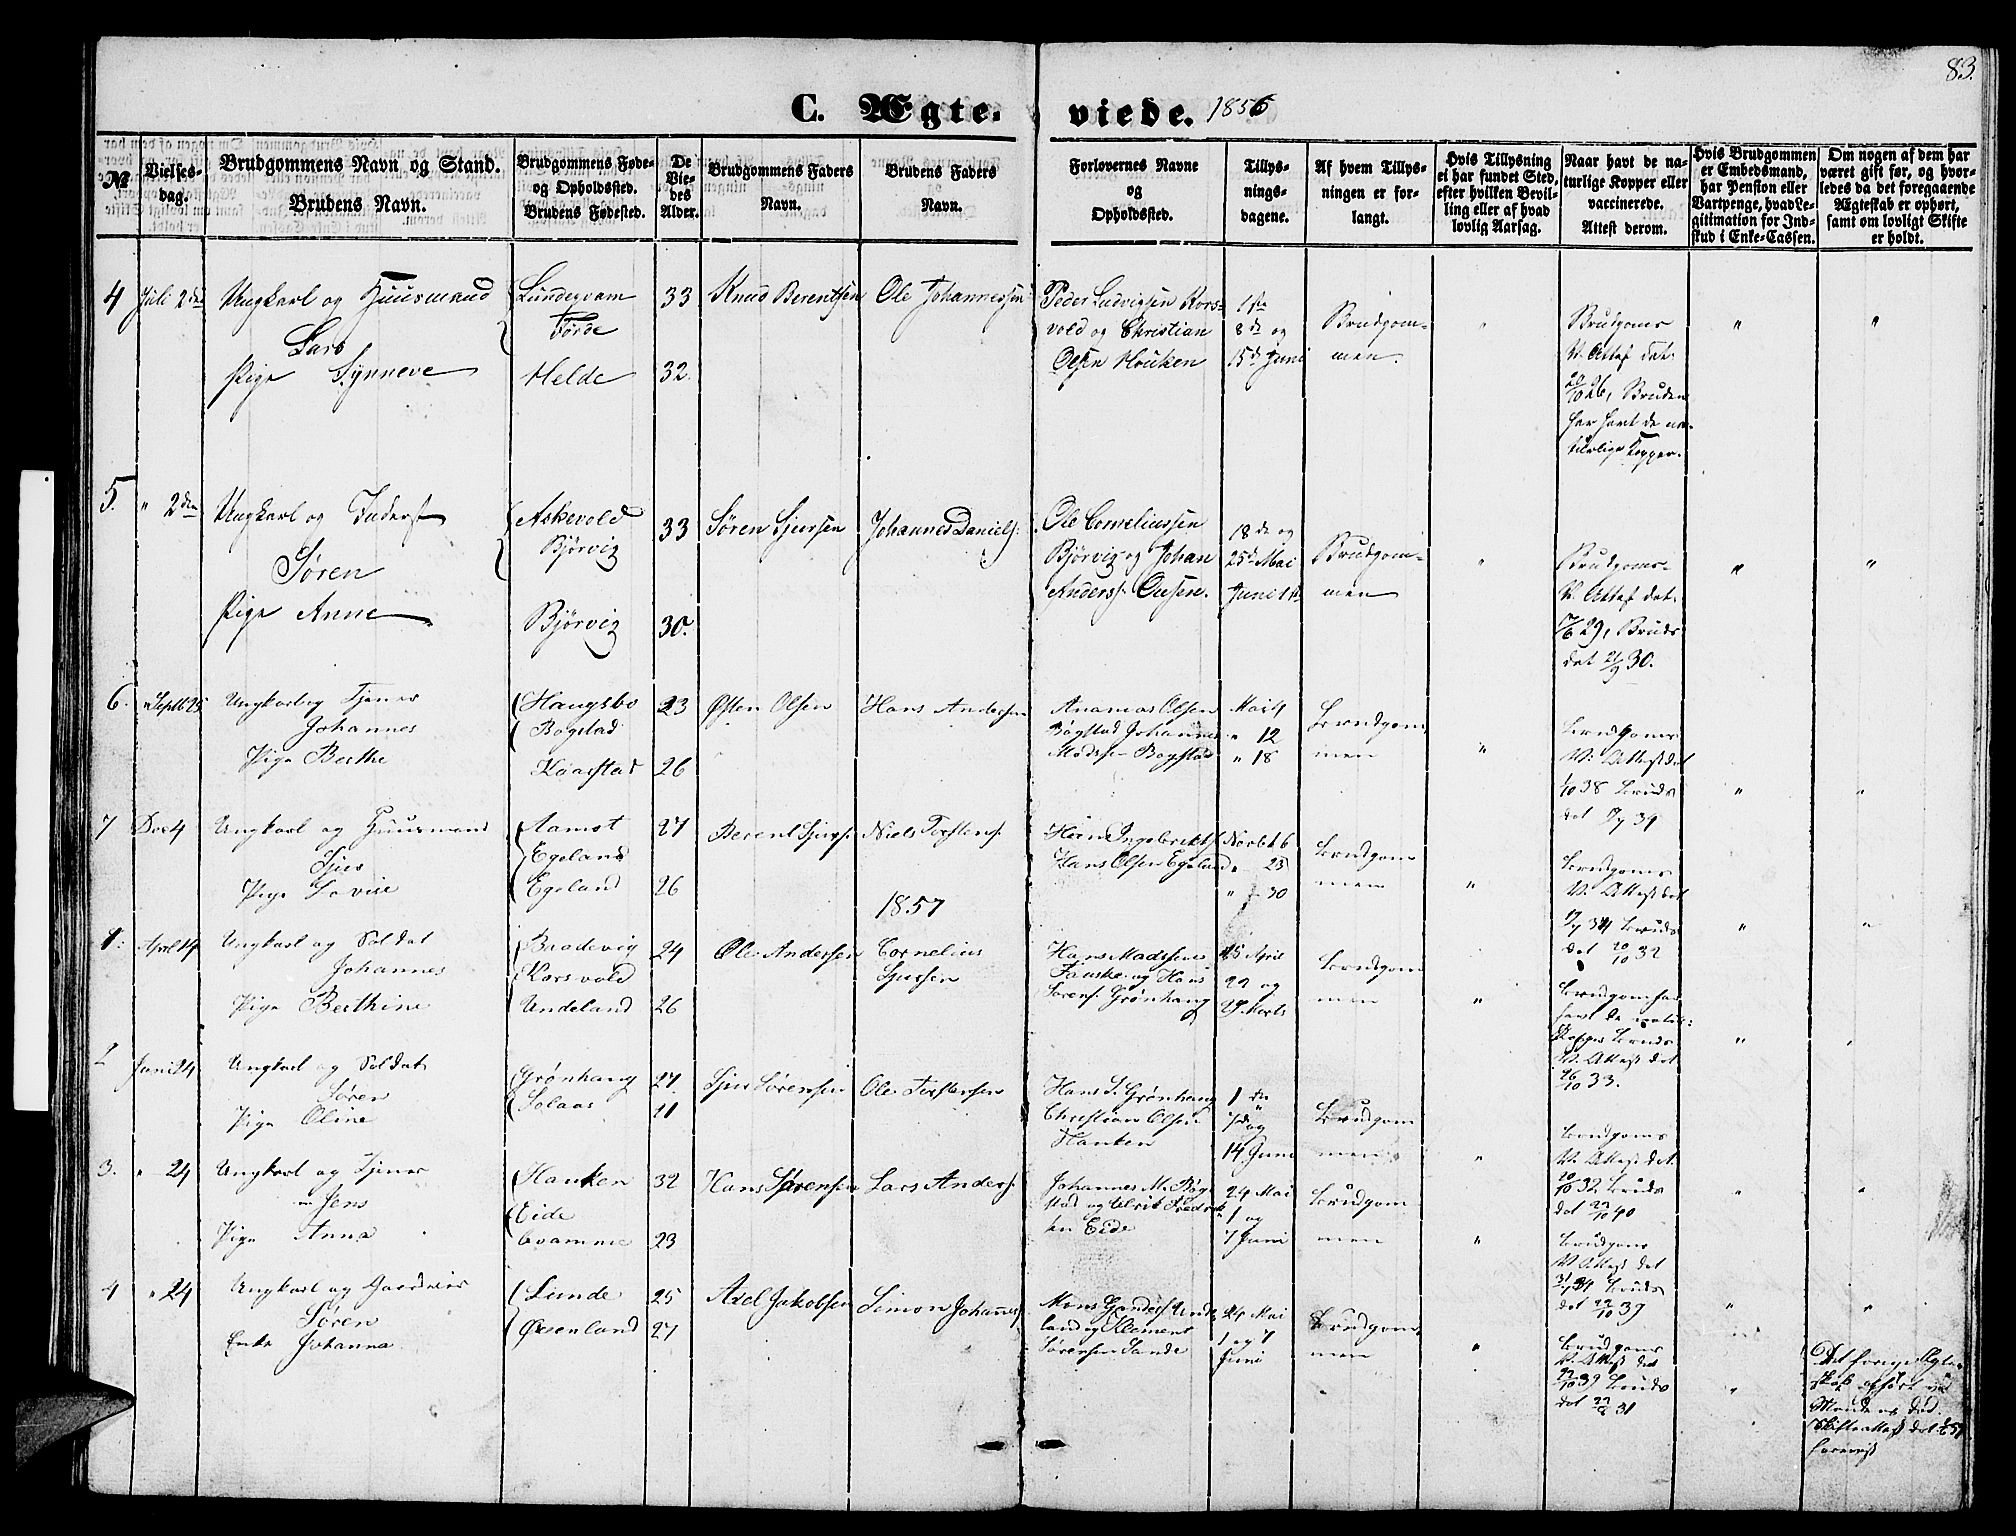 83.
C. Ægte- viede. 1856
№
Vielses-
dag.
Brudgommens Navn og Stand.
Brudens Navn.
Brudgommens Føde-
og Opholdssted.
Brudens Fødested.
De
Vie-
des
Alder.
Brudgommens Faders
Navn.
Brudens Faders
Navn.
Forlovernes Navne
og
Opholdssted.
Tillys-
nings-
dagene.
Af hvem Tillys-
ningen er for-
langt.
Hvis Tillysning
ei har fundet Sted,
efter hvilken Bevil-
ling eller af hvad
lovlig Aarsag.
Naar havt de na-
turlige Kopper eller
vaccinerede.
Attest derom.
Hvis Brudgommen
er Embedsmand,
har Pension eller
Vartpenge, hvad Le-
gitimation for Ind-
skud i Enke-Cassen.
Om nogen af dem har
været gift før, og hvor-
ledes da det foregaaende
Ægteskab er ophørt,
samt om lovligt Skifte
er holdt.
4 Juli 2den Ungkarl og Huusmand
Lars
Pige Synneve
Lundeqvam
Førde
Helde
33
32.
Knud Berentsen
Ole Johannessen
Peder Ludvigsen Kors-
vold og Christian
Olsen Houken
1ste
8de og
15de Juni
Brudgom-
men.
"
Brudgoms
V. Attest dat:
20/10 26, Bruden
har havt de na-
turlige Kopper.
"
"
5. " 2den Ungkarl og Inderst
Søren
Pige Anne
Askevold
Bjørvig
Bjørvig
33
30.
Søren Sjursen
Johannes Daniels:
Ole Corneliussen
Bjørvig og Johan
Anders:
18de og
25de Mai
Juni 1ste
Brudgom-
men
"
Brudgoms-
V. Attest dat:
29, Bruds
dat 21/9 30.
"
"
6. Septb 25 Ungkarl og Tjener
Johannes
Pige Berthe
Haugsbø
Bøgstad
Kaarstad
23
26
Østen Olsen
Hans Andersen
Ananias Olsen
Bøgstad Johannes
Madsen Bøgstad
Mai 4
" 12
" 18
Brudgom
men
"
Brudgoms
V: Attest dat
38 Bruds
dat 39
"
"
7 Dec 4 Ungkarl og Huusmand
Sjur
Pige Lovise
Aamot
Egeland
Egeland
27
26
Berent Sjurs:
Niels Torstens:
Ingebrekts:
Hans Olsen Egeland
Novbr 16
" 23
" 30
Brudgom
men
"
Brudgoms
V. Attest dat
34 Bruds
dat 20/10 32
"
"
1857
1: April 14 Ungkarl og Soldat
Johannes
Pige Berthine
Bradevig
Korsvold
Undeland
24
26
Ole Andersen
Cornelius
Sjursen
Hans Madsen
Fauske og Hans
Sørens: Grønhaug
April
22 og
29 Marts
Brudgom
men
"
Brudgom har
havt de naturl:
Kopper Bruds
V. Attest dat
26/10 33.
"
2 Juni 24 Ungkarl og Soldat
Søren
Pige Oline
Grønhaug
Solaas
27
Sjur Sørensen
Ole Torstensen
Hans S. Grønhaug
Christian Olsen
Hauken
1ste
7de og
14. Juni
Brudgom
men
"
Brudgoms
V. Attest dat
20/10 32 Bruds
dat 22/10 40
"
"
3. " 24 Ungkarl og Tjener
Jens
Pige Anna
Hauken
Eide
Qvamme
32
23
Hans Sørensen
Lars Anders:
Johannes M. Bøg
stad og Ulrik Fredrik
sen Eide
24 Mai
1 og
7 Juni
Brudgom
men
"
Brudgoms
V. Attest dat
34 Bruds
dat 22/10 39
"
"
4 " 24 Ungkarl og Gardeier
Søren
Enke Johanna
Lunde
Øxenland
25
27
Axel Jakobsen
Simon Johannes:
Mons Unde
land og Klement
Sørensen Sande
24 Mai
1 og 7
Juni
Brudgom
men
"
Brudgoms
V. Attest dat
22/10 39 Bruds
dat 31
"
Det forrige Ægte
skab ophørt ved
Mandens Død.
Skifteattest dat 57
foreviist